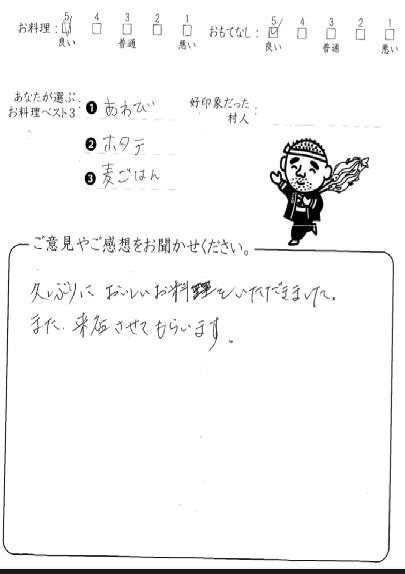 お料理： 5 4 3 2 1 おもてなし： 5 4 3 2 1
良い 普通 悪い 良い 普通 悪い
あなたが選ぶ
お料理ベスト3：
❶ あわび
❷ ホタテ
❸ 麦ごはん
好印象だった
村人：
ご意見やご感想をお聞かせください。
久しぶりにおいしいお料理をいただきました。
また、来店させてもらいます。